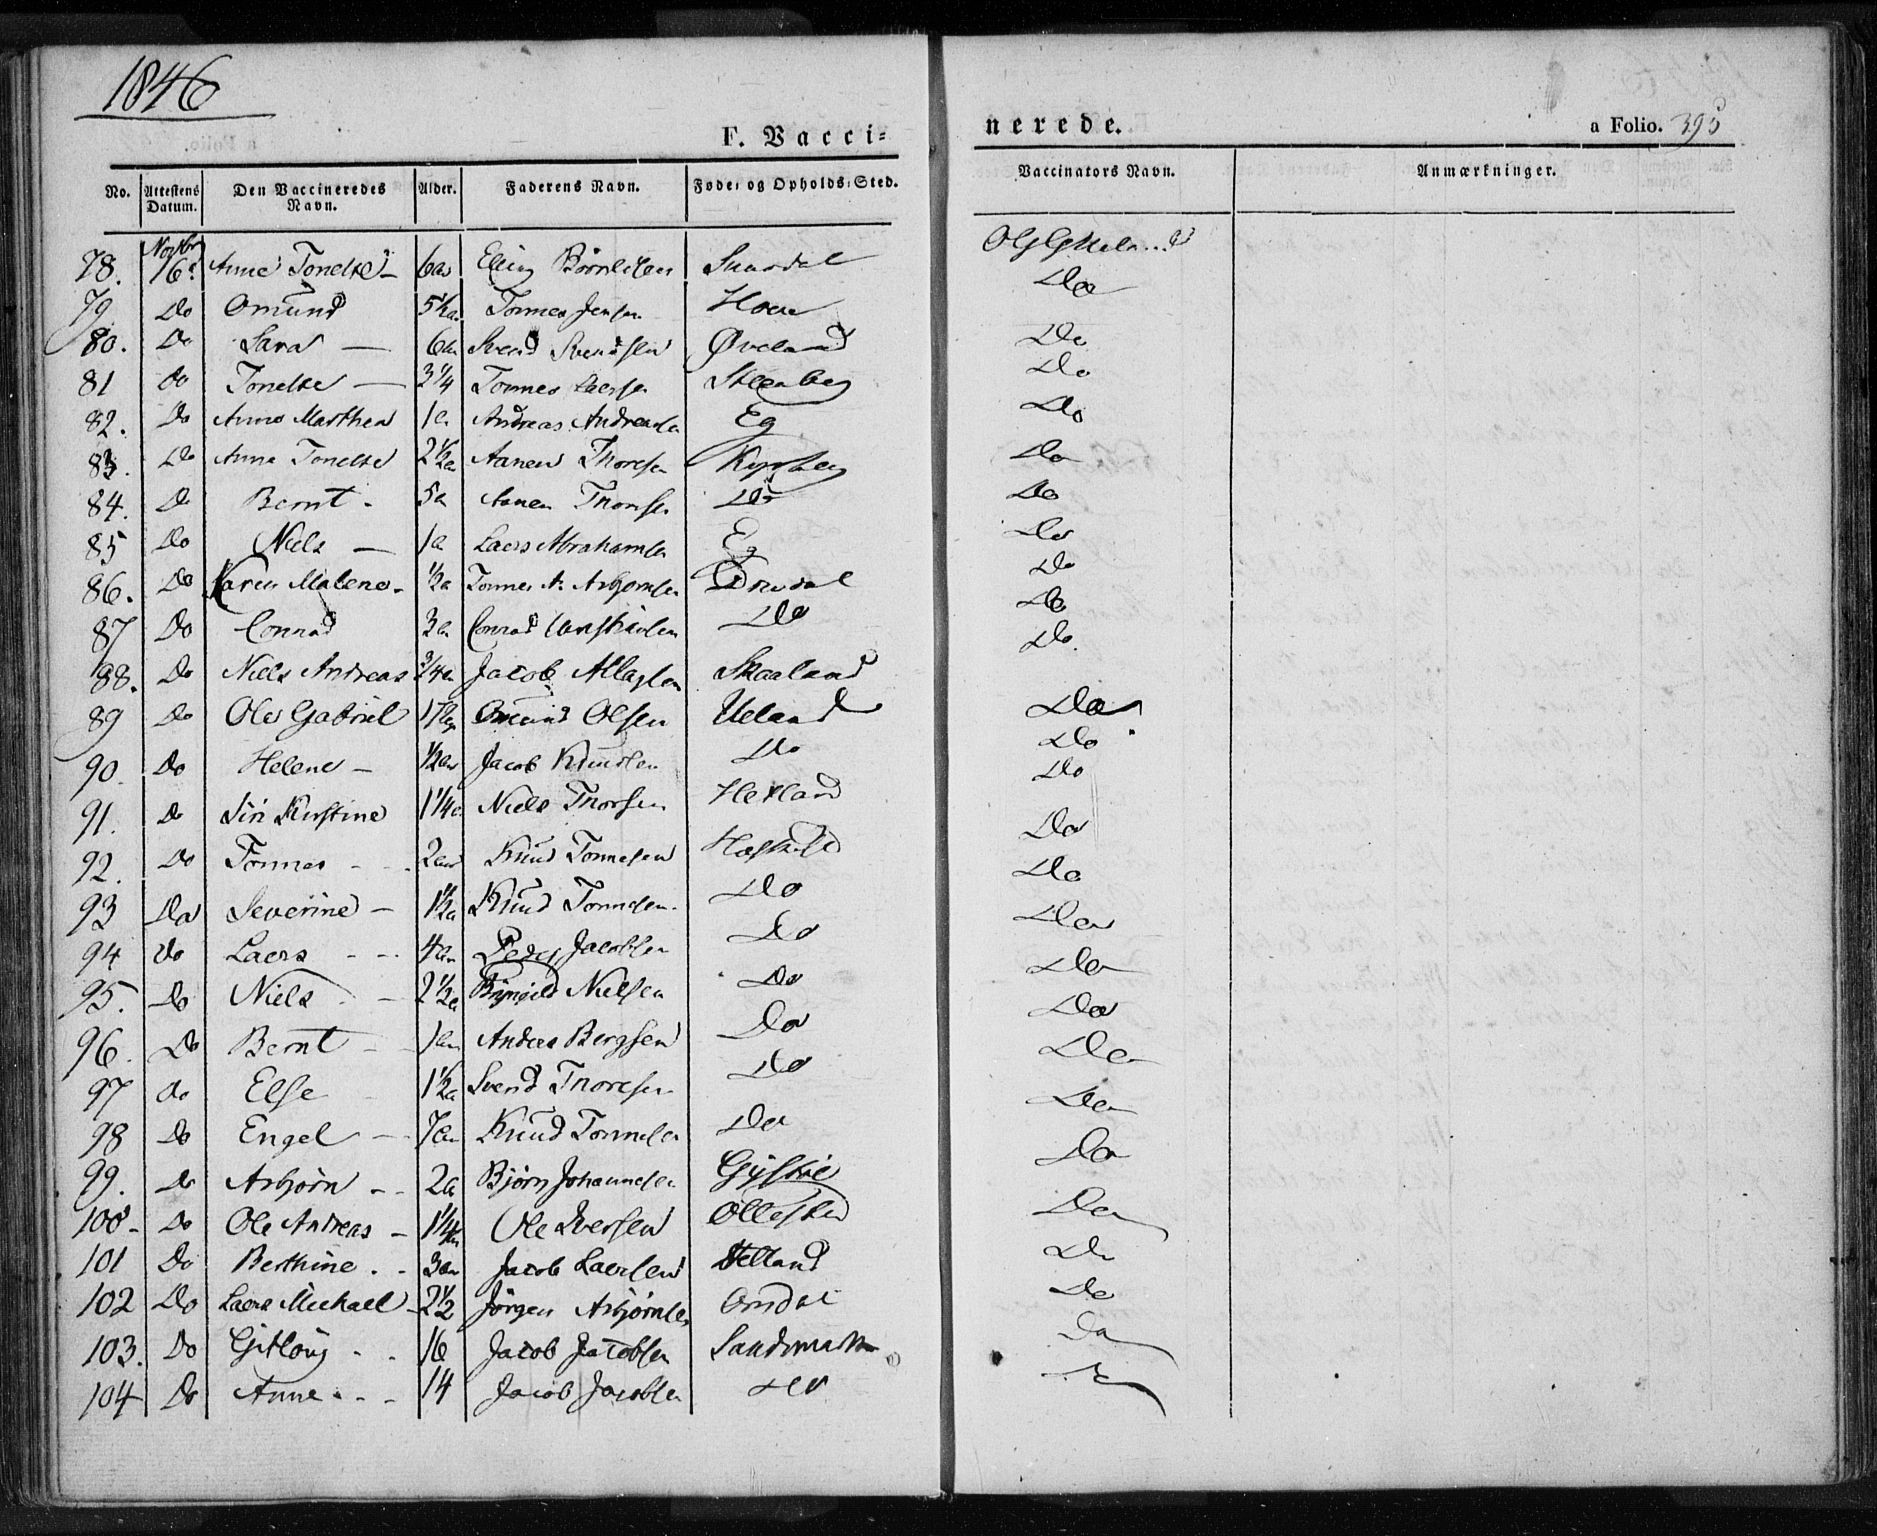 1846
F. Vacci=
nerede.
a Folio. 395
No. Attestens Datum. Den Vaccineredes Navn. Alder. Faderens Navn. Føde= og Opholds=Sted. Vaccinators Navn. Anmærkninger.
78. Novbr 16 Anne Tonelte 6a
79 Do Omund 5½a Tonnes Jensen Do
80. Do Sara 6a Svend Svendsen Øveland Do
81 do Tonelte 3¼ Tonnes Laersen Steenberg Do
82. Do Anne Marthea 1a Andreas Andreasen Eg Do
83. Do Anna Tonelte 2½a Aanen Thorsen Do
84. Do Bernt 5a Aanen Thorsen Do Do
85 Do Niels 1a Laers Abrahamsen Eg Do
86. Do Karen Malene ½a Tonnes A. Asbjornsen Do
87 Do Conrad 3a Conrad Do Do
88. Do Niels Andreas ¾a Jacob Skaaland Do
89 Do Ole Gabriel Omund Olsen Ueland Do
90. Do Helene ½a Jacob Knudsen Do Do
91. Do Siri Kirstine 1¼a Niels Thorsen Hetland Do
92. Do Tonnes 2a Knud Tonnesen Do
93 Do Severine 1½a Knud Tonnesen Do Do
94 do Laers 4a Peder Jacobsen Do Do
95. Do Niels 2½a Nielsen Do Do
96. Do Bernt 1a Andreas Bergsen Do Do
97 do Else 1½a Svend Thorsen Do Do
98 Do Engel 7a Knud Tonnesen Do Do
99. Do Asbjørn 2a Bjørn Johannesen Do
100 Do Ole Andreas 1¼a Ole Iversen Do
101 Do Berthine 3a Jacob Laersen Helland Do
102 Do Laers Michael 2½ Jørgen Asbjørnsen Omdal Do
103. Do Gitlaug 16 Jacob Jacobsen Sandsmark Do
104 Do Anne 14 Jacob Jacobsen Do Do